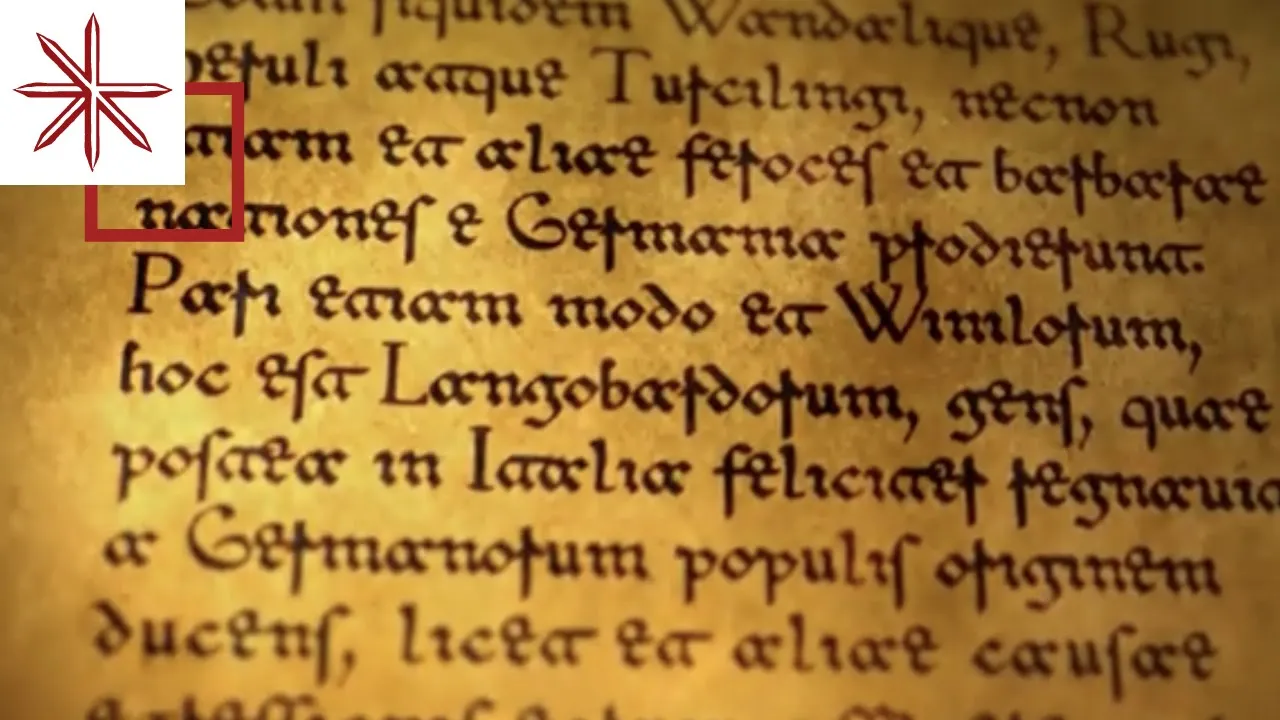 siquidem Wandalique, Rugi,
eruli atque Turcilingi, necnon
tiam et aliae feroces et barbarae
nationes e Germania prodierunt.
Pari etiam modo et Winilorum,
hoc est Langobardorum, gens, quae
postea in Italia feliciter regnaui
a Germanorum populis originem
ducens, licet et aliae causae